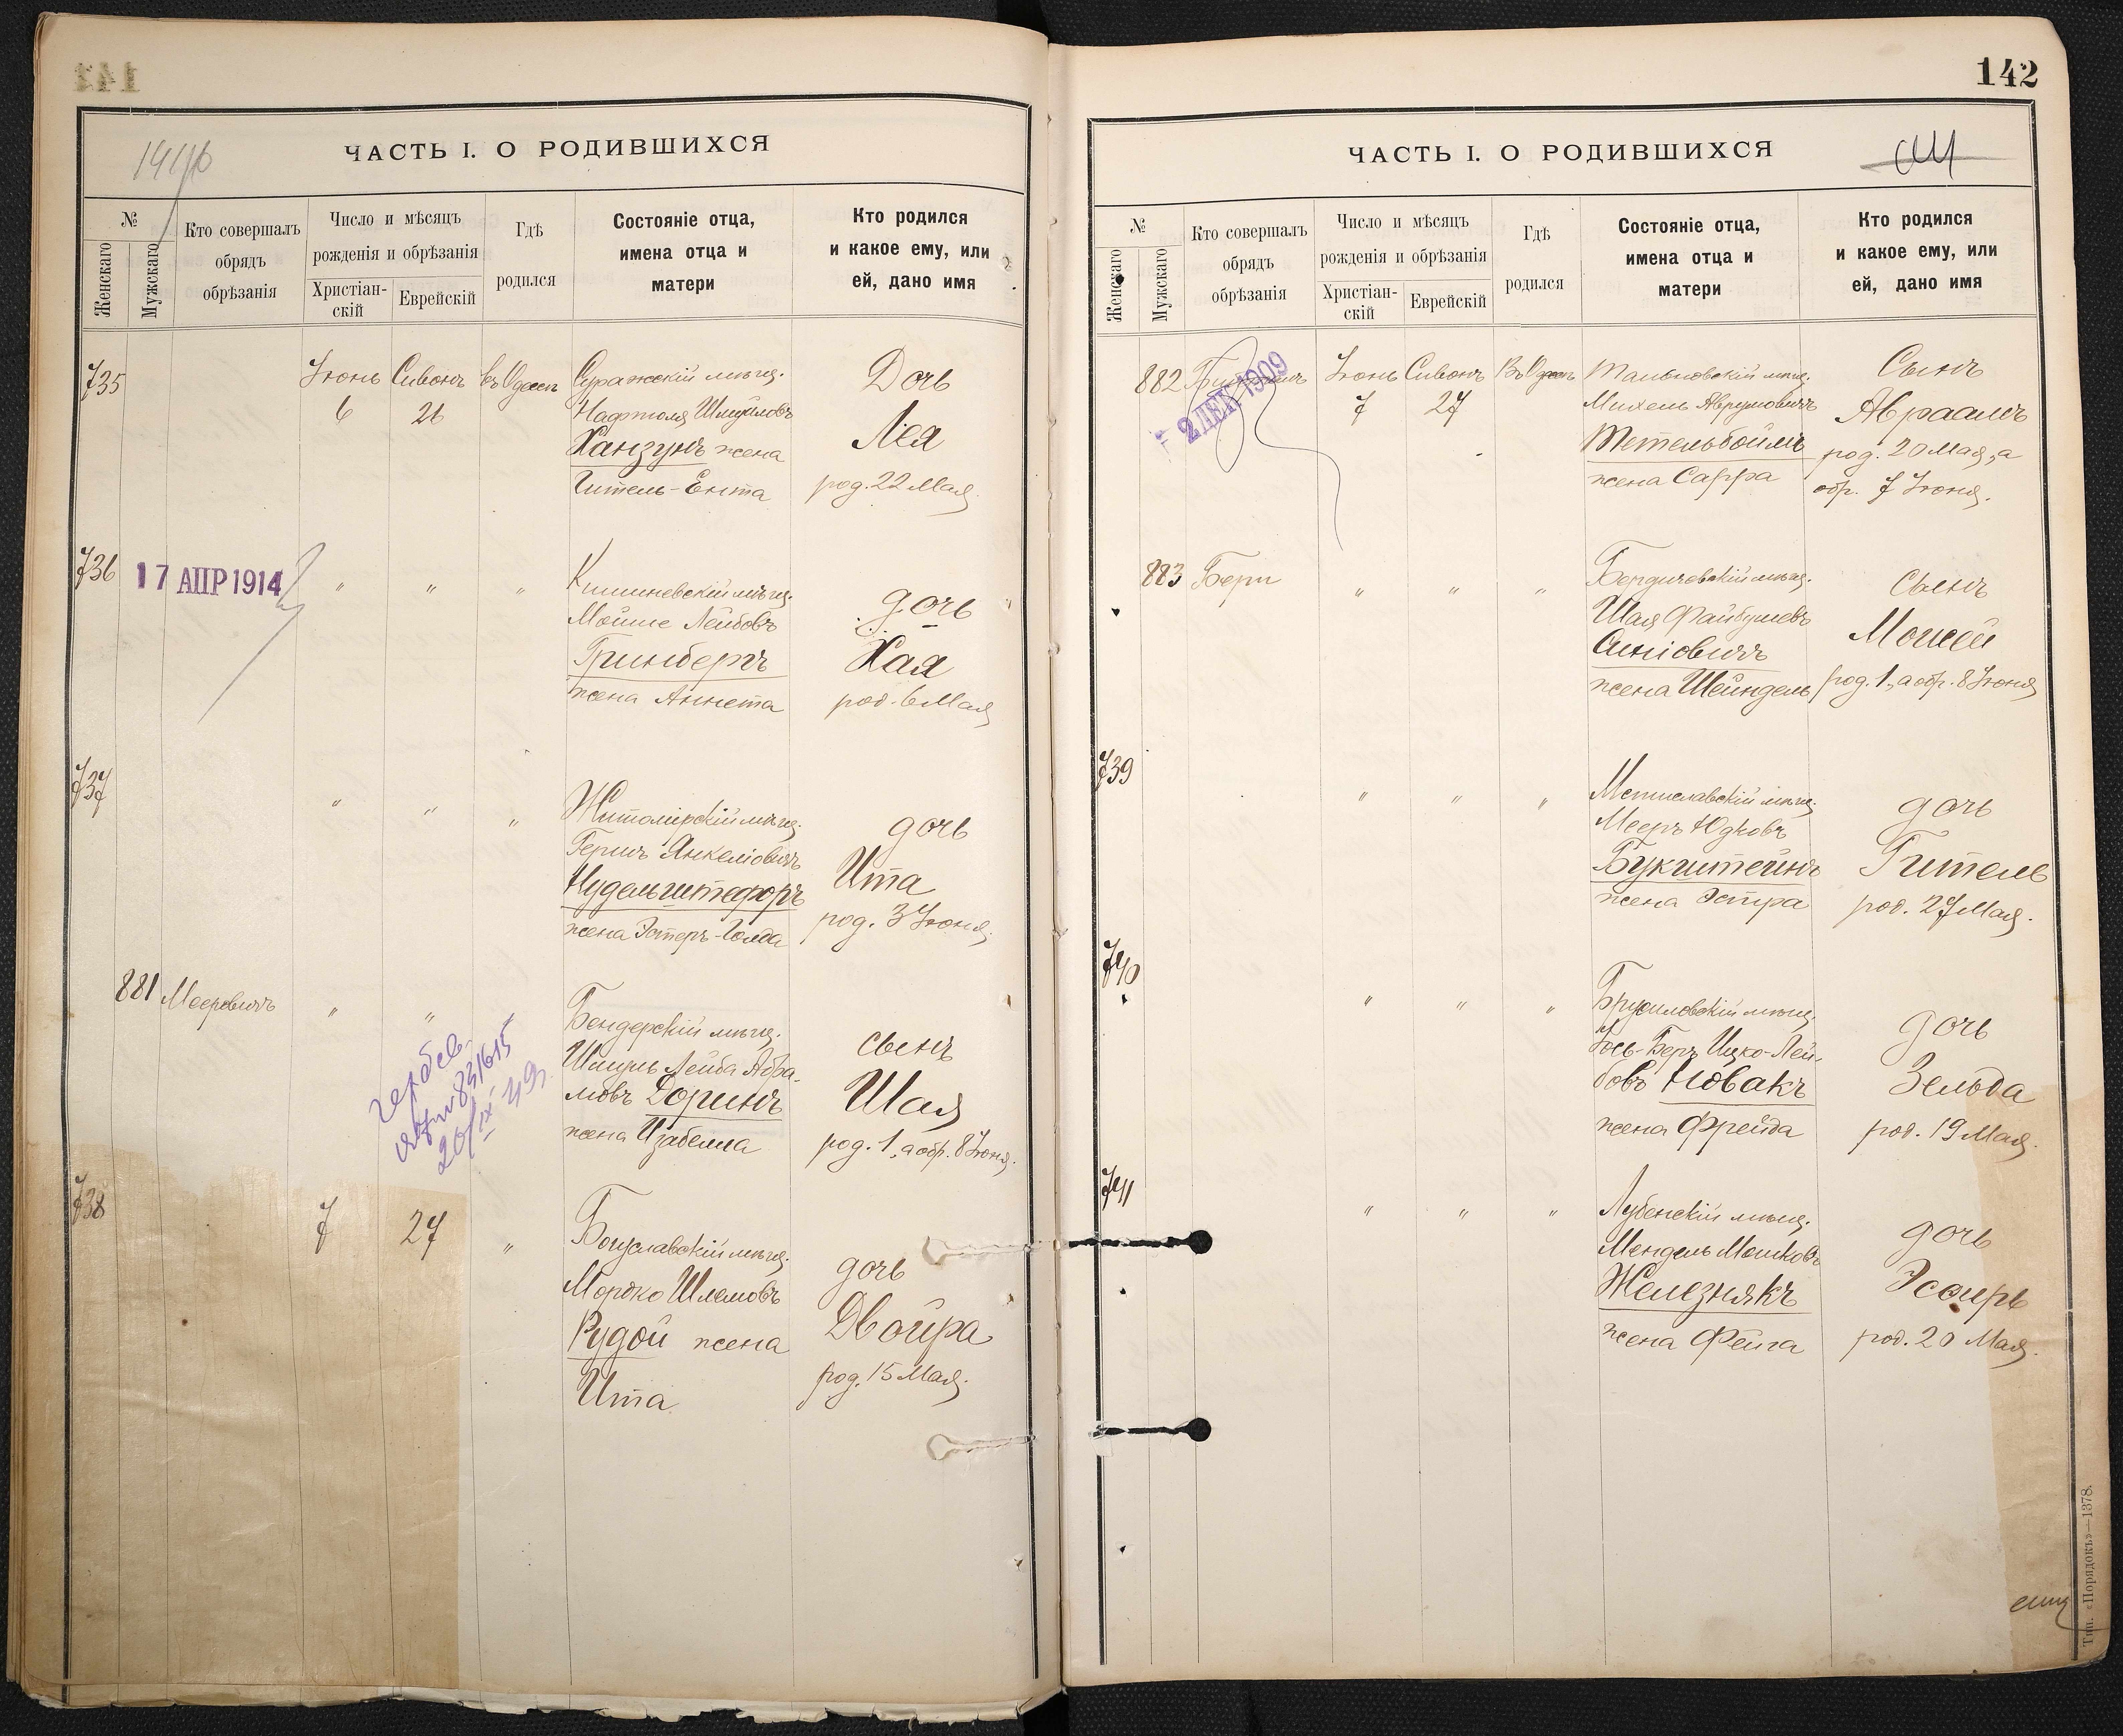 141
ЧАСТЬ I. О РОДИВШИХСЯ
№
Женскаго
Мужскаго
Кто совершалъ
обрядъ
обрѣзанія
Число и мѣсяцъ
рожденія и обрѣзанія
Христіан-
скій
Еврейскій
Гдѣ
родился
Состояніе отца,
имена отца и
матери
Кто родился
и какое ему, или
ей, дано имя
735
Іюнь Сивонъ въ Одессѣ
6 26
Суражскій мѣщ.
Нафтоля Шмуйловъ
Ханзунъ жена
Гитель-Ента
Дочь
Лея
род. 22 Мая
736
17 АПР 1914
" " "
Кишиневскій мѣщ.
Мойше Лейбовъ
Гринбергъ
жена Аннета
дочь
Хая
род. 6 Мая
737
" " "
Житомірскій мѣщ.
Гершъ Янкеліовичъ
Нудельштефоръ
жена Эстеръ-Голда
дочь
Ита
род. 3 Іюня.
881 Мееровичъ
" "
Бендерскій мѣщ.
Шмуль Лейба Абра-
мовъ Доринъ
жена Изабелла
сынъ
Шая
род. 1, а обр. 8 Іюня.
831615
20/IX 49
738
7 27 "
Богуславскій мѣщ.
Мордко Шлемовъ
Рудой жена
Ита
дочь
Двойра
род. 15 Мая.
142
ЧАСТЬ I. О РОДИВШИХСЯ
№
Женскаго
Мужскаго
Кто совершалъ
обрядъ
обрѣзанія
Число и мѣсяцъ
рожденія и обрѣзанія
Христіан-
скій
Еврейскій
Гдѣ
родился
Состояніе отца,
имена отца и
матери
Кто родился
и какое ему, или
ей, дано имя
882
2 ДЕК 1909
Іюнь Сивонъ Въ Одессѣ
7 27
Тальновскій мѣщ.
Михель Аврумовичъ
Тетельбоймъ
жена Сарра
Сынъ
Авраамъ
род. 20 Мая, а
обр. 7 Іюня.
883 Бери
" " "
Бердичевскій мѣщ.
Шая Файбушевъ
Синіовичъ
жена Шейндель
Сынъ
Моисей
род. 1, а обр. 8 Іюня
739
" " "
Мстиславскій мѣщ.
Мееръ Юдковъ
Букштейнъ
жена Эстра
дочь
Гитель
род. 27 Мая.
740
" " "
Брусиловскій мѣщ.
Іось-Беръ Ицко-Лей-
бовъ Новакъ
жена Фрейда
дочь
Зельда
род. 19 Мая.
741
" " "
Лубенскій мѣщ.
Мендель Мошковъ
Железнякъ
жена Фейга
дочь
Эсѳирь
род. 20 Мая.
Тип. «Порядокъ»—1378.